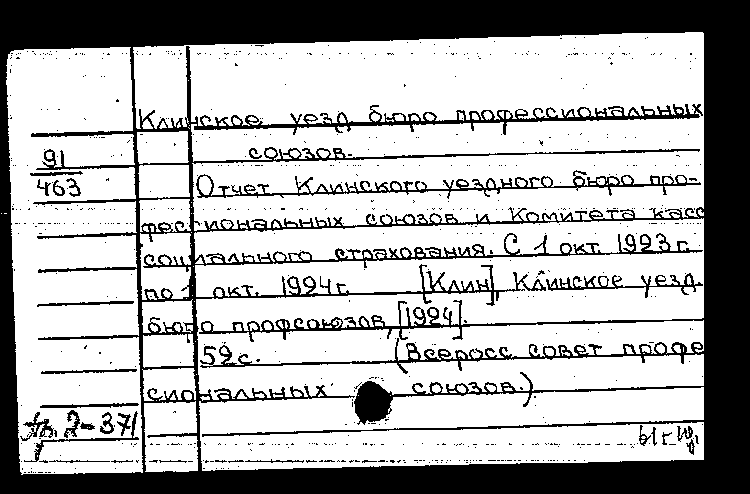 Клинское уезд бюро профессиональных
союзов.
91
463
Отчет Клинского уездного бюро про-
фессиональных союзов и Комитета касс
социального страхования. С 1 окт 1923 г.
по 1 окт. 1924 г. [Клин], Клинское уезд.
бюро профсоюзов, [1924].
52 с. (Всеросс совет профе
сиональных союзов.)
2-371